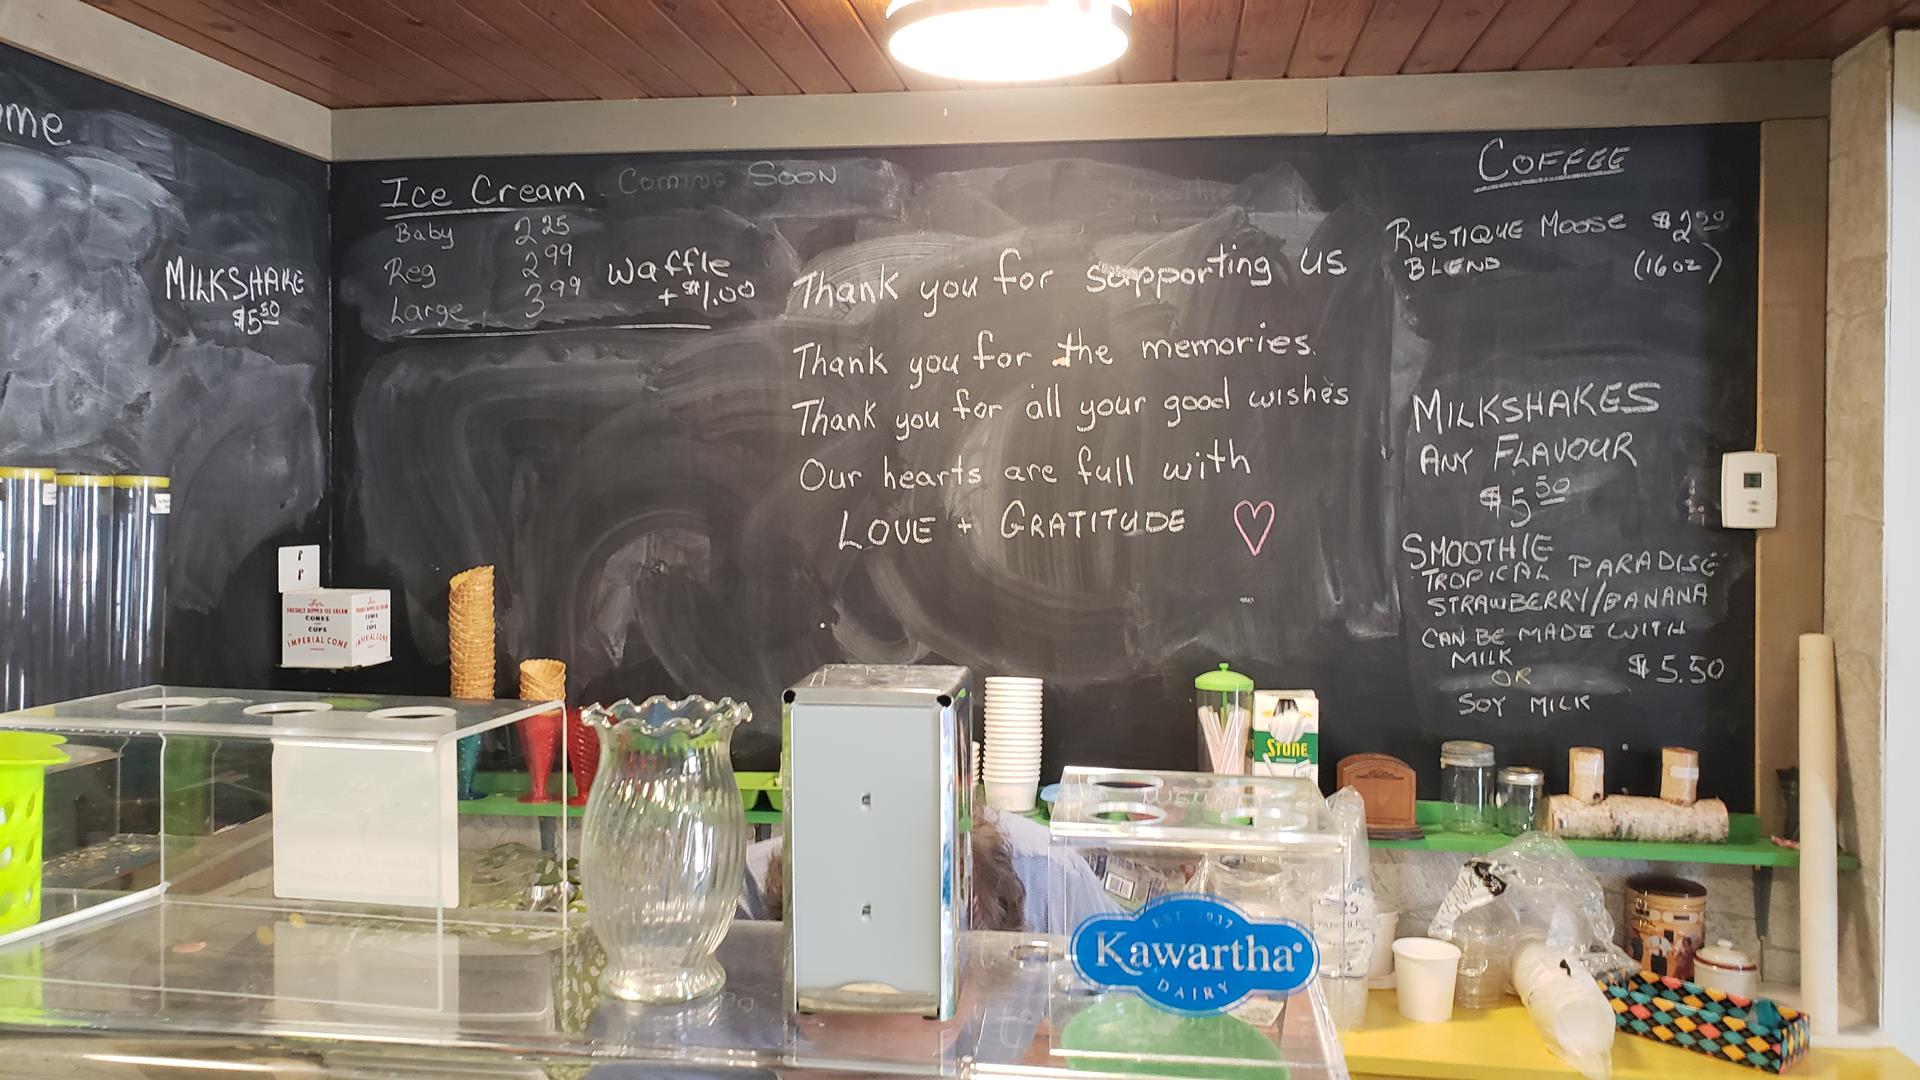 ome
MILKSHAKE
$5.50
Ice Cream Coming Soon
Baby 2.25
Reg 2.99
Large 3.99
Waffle
+ $1.00
Thank you for supporting us
Thank you for the memories.
Thank you for all your good wishes
Our hearts are full with
LOVE + GRATITUDE
COFFEE
RUSTIQUE MOOSE $2.50
BLEND (16 oz)
MILKSHAKES
ANY FLAVOUR
$5.50
SMOOTHIE
TROPICAL PARADISE
STRAWBERRY/BANANA
CAN BE MADE WITH
MILK $5.50
OR
SOY MILK
For
FRESHLY DIPPED ICE CREAM
CONES
CUPS
IMPERIAL CONE
STONE
EST 1937
Kawartha
DAIRY